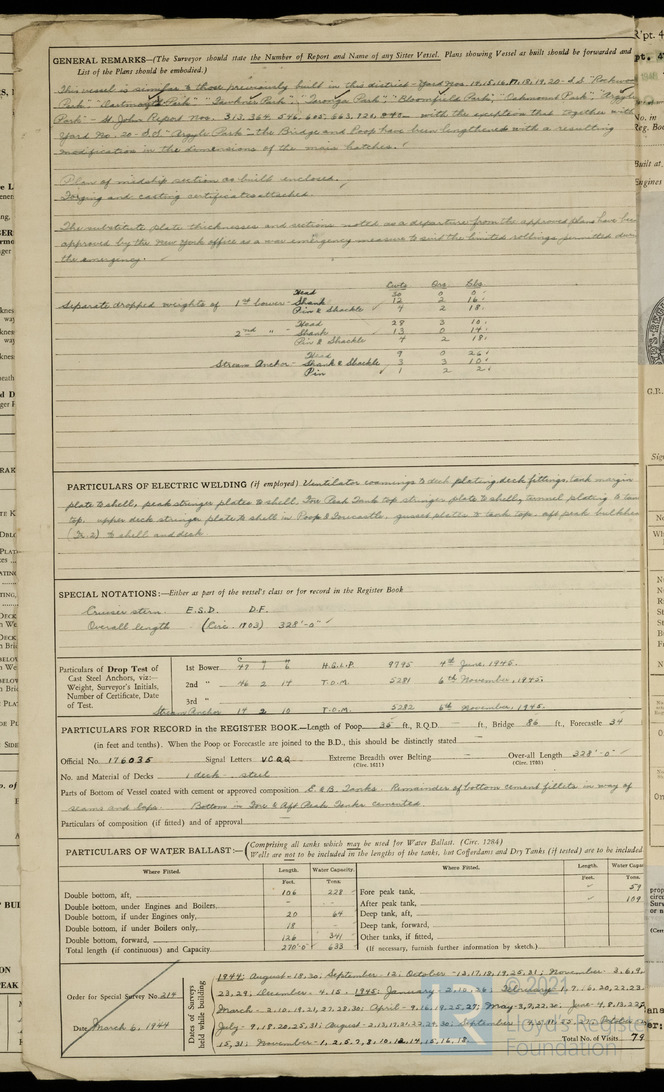 GENERAL REMARKS—(The Surveyor should state the Number of Report and Name of any Sister Vessel. Plans showing Vessel as built should be forwarded and
List of the Plans should be embodied.)
This vessel is similar to those previously built in this district - Yard Nos. 14,15,16,17,18,19,20 - S.S "Rockwood
Park" "Dartmouth Park" "Park" "Taronga Park" "Bloomfield Park", "Oakmount Park" "Argyle
Park" - St. John Report Nos. 313, 364, 546, 605, 663, 721, with the exception that together with
Yard No. 20 - S.S "Argyle Park" - the Bridge and Poop have been lengthened with a resulting
modification in the dimensions of the main hatches.
Plan of midship section as built enclosed.
Forging and casting certificates attached.
The substitute plate thicknesses and sections noted as a departure from the approved plans have been
approved by the New York office as a war emergency measure to suit the limited rollings permitted during
the emergency.
Cwts Qrs Lbs
Head 30 0 0
Separate dropped weights of 1st bower - Shank 12 2 16
Pin & Shackle 4 2 18
Head 28 3 10
2nd " - Shank 13 0 14
Pin & Shackle 4 2 18
Head 9 0 26
Stream Anchor Shank & Shackle 3 3 10
Pin 1 2 2
PARTICULARS OF ELECTRIC WELDING (if employed) Ventilator coamings to deck plating, deck fittings, tank margin
plate to shell, peak stringer plates to shell, Fore Peak Tank top stringer plate to shell, tunnel plating to tank
top, upper deck stringer plate to shell in Poop & Forecastle, gusset plates to tank top, aft peak bulkhead
to shell and deck
SPECIAL NOTATIONS:—Either as part of the vessel's class or for record in the Register Book
Cruiser stern. E.S.D. D.F.
Overall length (Circ. 1703) 328'-0"
Particulars of Drop Test of
Cast Steel Anchors, viz:—
Weight, Surveyor's Initials,
Number of Certificate, Date
of Test.
1st Bower 9745 4th June, 1945.
2nd " 46 2 14 T.O.M. 5281 6th November, 1945.
3rd "
Stream Anchor 14 2 10 T.O.M. 5282 6th November, 1945.
PARTICULARS FOR RECORD in the REGISTER BOOK.—Length of Poop 36 ft., R.Q.D. — ft., Bridge 86 ft., Forecastle 34
(in feet and tenths). When the Poop or Forecastle are joined to the B.D., this should be distinctly stated
Official No. 176035 Signal Letters VCQQ Extreme Breadth over Belting (Circ. 1611) — Over-all Length (Circ. 1703) 328'-0"
No. and Material of Decks 1 deck - steel
Parts of Bottom of Vessel coated with cement or approved composition E & B. Tanks. Remainder of bottom cement fillets in way of
seams and laps. Bottom in Fore & Aft Peak Tanks cemented.
Particulars of composition (if fitted) and of approval —
PARTICULARS OF WATER BALLAST:—(Comprising all tanks which may be used for Water Ballast. (Circ. 1284)
Wells are not to be included in the lengths of the tanks, but Cofferdams and Dry Tanks (if tested) are to be included
Where Fitted. Length. Water Capacity. Where Fitted. Length. Water Capac
Feet. Tons. Feet. Tons.
Double bottom, aft, 106 228 Fore peak tank, 59
Double bottom, under Engines and Boilers, - - After peak tank, 109
Double bottom, if under Engines only, 20 64 Deep tank, aft,
Double bottom, if under Boilers only, 18 Deep tank, forward,
Double bottom, forward, 126 341 Other tanks, if fitted,
Total length (if continuous) and Capacity 270'0" 633 (If necessary, furnish further information by sketch.)
Order for Special Survey No. 214
Date March 6, 1944
Dates of Surveys held while building
1944: August - 18, 30, September - 12; October - 12,17,18,19,25,31; November - 2,6,9,
23,29, December - 4, 15. 1945: January - 2,10,26; February - 1,7,16,20,22,23
March - 2,10,19,21,27,28,30; April - 9,16,19,25,27; May - 3,7,22,30; June - 4,8,13,22,25
July - 9,18,20,25,31; August - September October
15,31; November - 1,2,5,7,8,10,12,14,15,16,18.
Total No. of Visits 79
© 2021
Lloyd's Register
Foundation